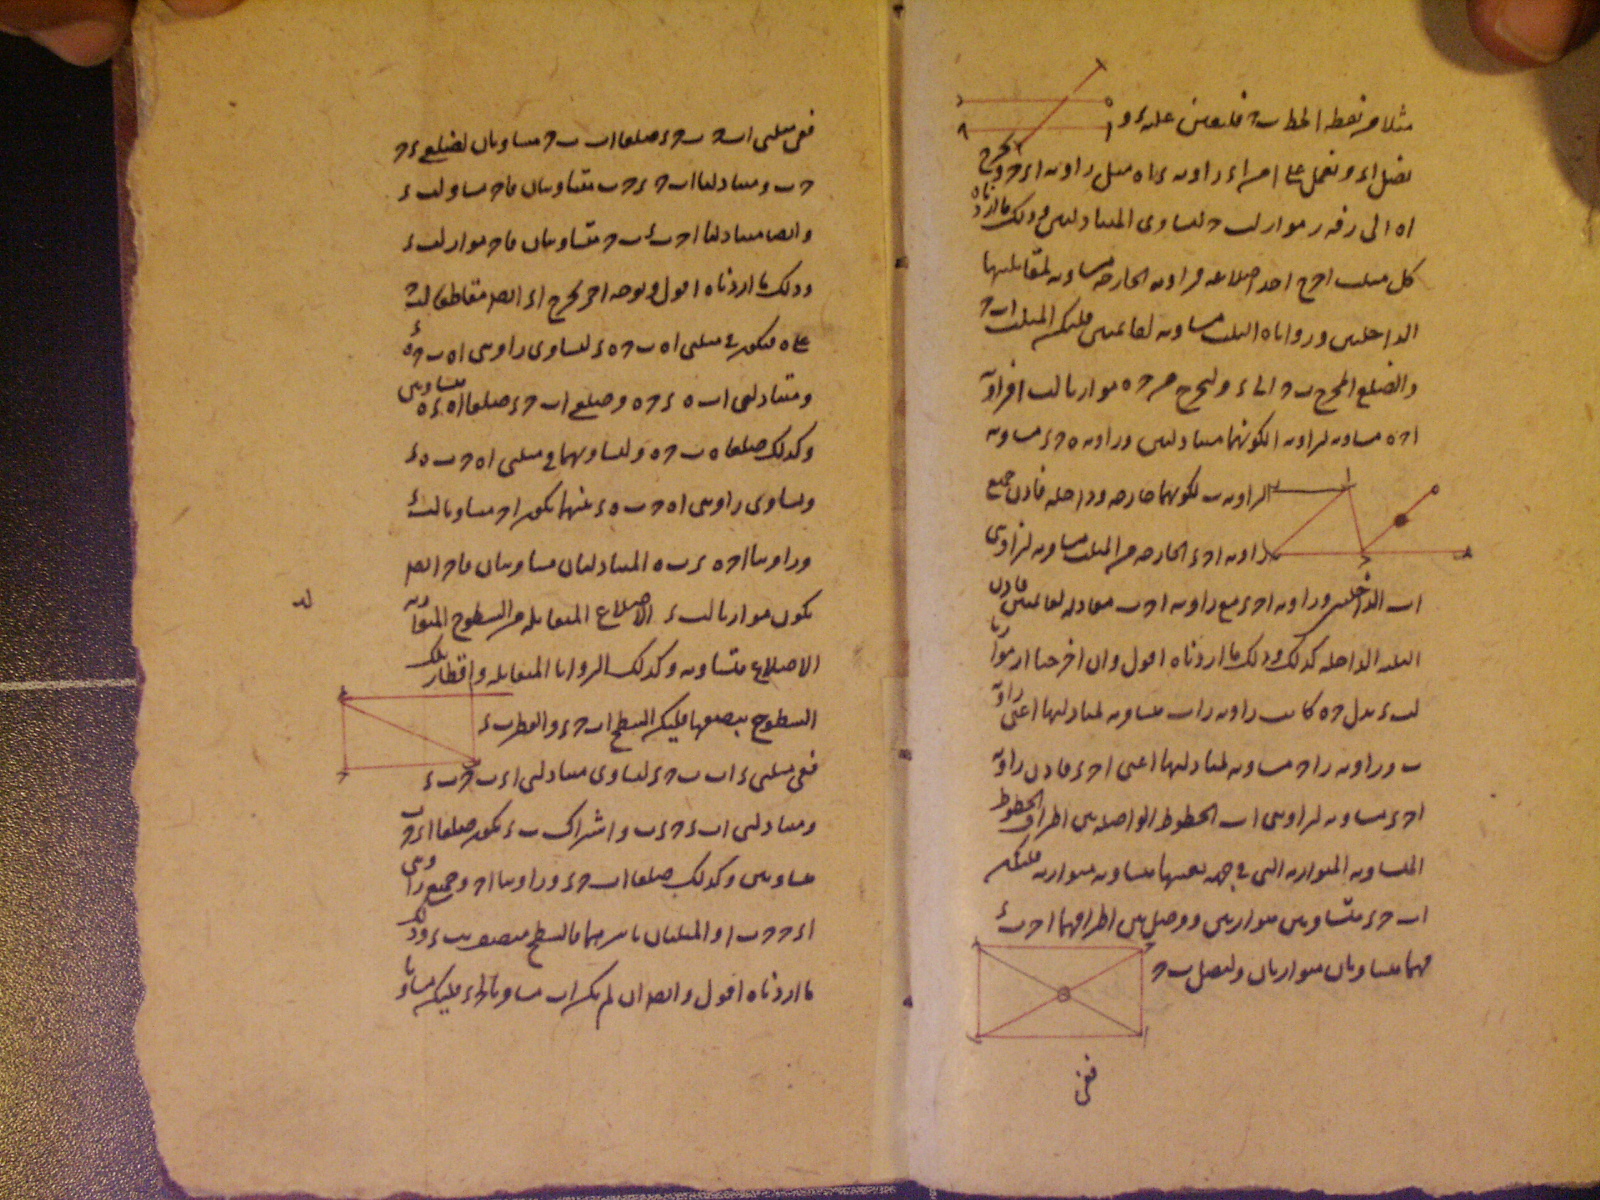 مثلا من نقطة ا لخط ب ح فليعين عليه ء و
نصل اء و نعمل على ا من اء زاوية ء ا ه مثل زاوية ا ء ح و نخرج
ه ا الى ز فه ز مواز لب ح لتساوى المتبادلتين و ذلك ما اردناه
كل مثلث اخرج احد اضلاعه فزاويته الخارجة مساوية لمقابلتيها
الداخلتين و زواياه الثلث مساوية لقائمتين فليكن المثلث ا ب ح
والضلع المخرج ب ح الى ء و ليخرج من ح ه موازيا لب ا فزاوية
ا ح ه مساوية لزاوية ا لكونهما متبادلتين و زاوية ه ح ء مساوية
لزاوية ب لكونهما خارجة و داخلة فاذن جميع
زاوية ا ح ء الخارجة من المثلث مساوية لزاويتى
ا ب الداخلتين و زاوية ا ح ء مع زاوية ا ح ب معادلة لقائمتين فاذن
الثلثة الداخلة كذلك و ذلك ما اردناه اقول و ان اخرجنا از موازيا
لب ء بدل ح ه كانت زاوية ز ا ب مساوية لمتبادلتها اعنى زاوية
ب و زاوية ز ا ح مساوية لمتبادلتها اعنى ا ح ء فاذن زاوية
ا ح ء مساوية لزاويتى ا ب الخطوط الواصلة بين اطراف الخطوط
المتساوية المتوازية التى فى جهة بعينها متساوية متوازية فليكن
ا ب ح ء متساويين متوازيين و وصل بين اطرافهما ا ح ب ء
فهما متساويان متوازيان و لنصل ب ح
ففى
ففى مثلثى ا ب ح ب ح ء ضلعا ا ب ب ح مساويان لضلعى ء ح
ح ب و متبادلتا ا ب ح ء ح ب متساويتان فا ح مساو لب ء
وايضا متبادلتا ا ح ب ء ب ح متساويتان فا ح مواز لب ء
و ذلك ما اردناه اقول و بوجه اخر نخرج اء ايضا مقاطعا لب ح
على ه فيكون فى مثلثى ا ه ب ح ه ء لتساوى زاويتى ا ه ب ح ه ء
و متبادلتى ا ب ه ء ح ه و ضلعى ا ب ح ء ضلعا ا ه ء ه متساويين
و كذلك ضلعا ه ب ح ه و لتساويهما فى مثلثى ا ه ح ب ه ء
و تساوى زاويتى ا ه ح ب ه ء منهما يكون ا ح مساويا لب ء
و زاويتا ا ح ه ء ب ه المتبادلتان متساويتان فا ح ايضا
يكون موازيا لب ء الاضلاع المتقابلة من السطوح المتوازية
لد
الاضلاع متساوية و كذلك الزوايا المتقابلة و اقطار تلك
السطوح ينصفها فليكن السطح ا ب ح ء و القطر ب ء
ففى مثلثى ء ا ب ب ح ء لتساوى متبادلتى ا ء ب ح ب ء
و متبادلتى ا ب ء ح ء ب و اشتراك ب ء يكون ضلعا ا ء ح ب
متساويين و كذلك ضلعا ا ب ح ء و زاويتا ا ح و جميع زاويتى
ا ء ح ح ب ا و المثلثان باسرهما فالسطح منصف بب ء و ذلك
ما اردناه اقول و ايضا ان لم يكن ا ب مساويا لح ء فليكن مساويا